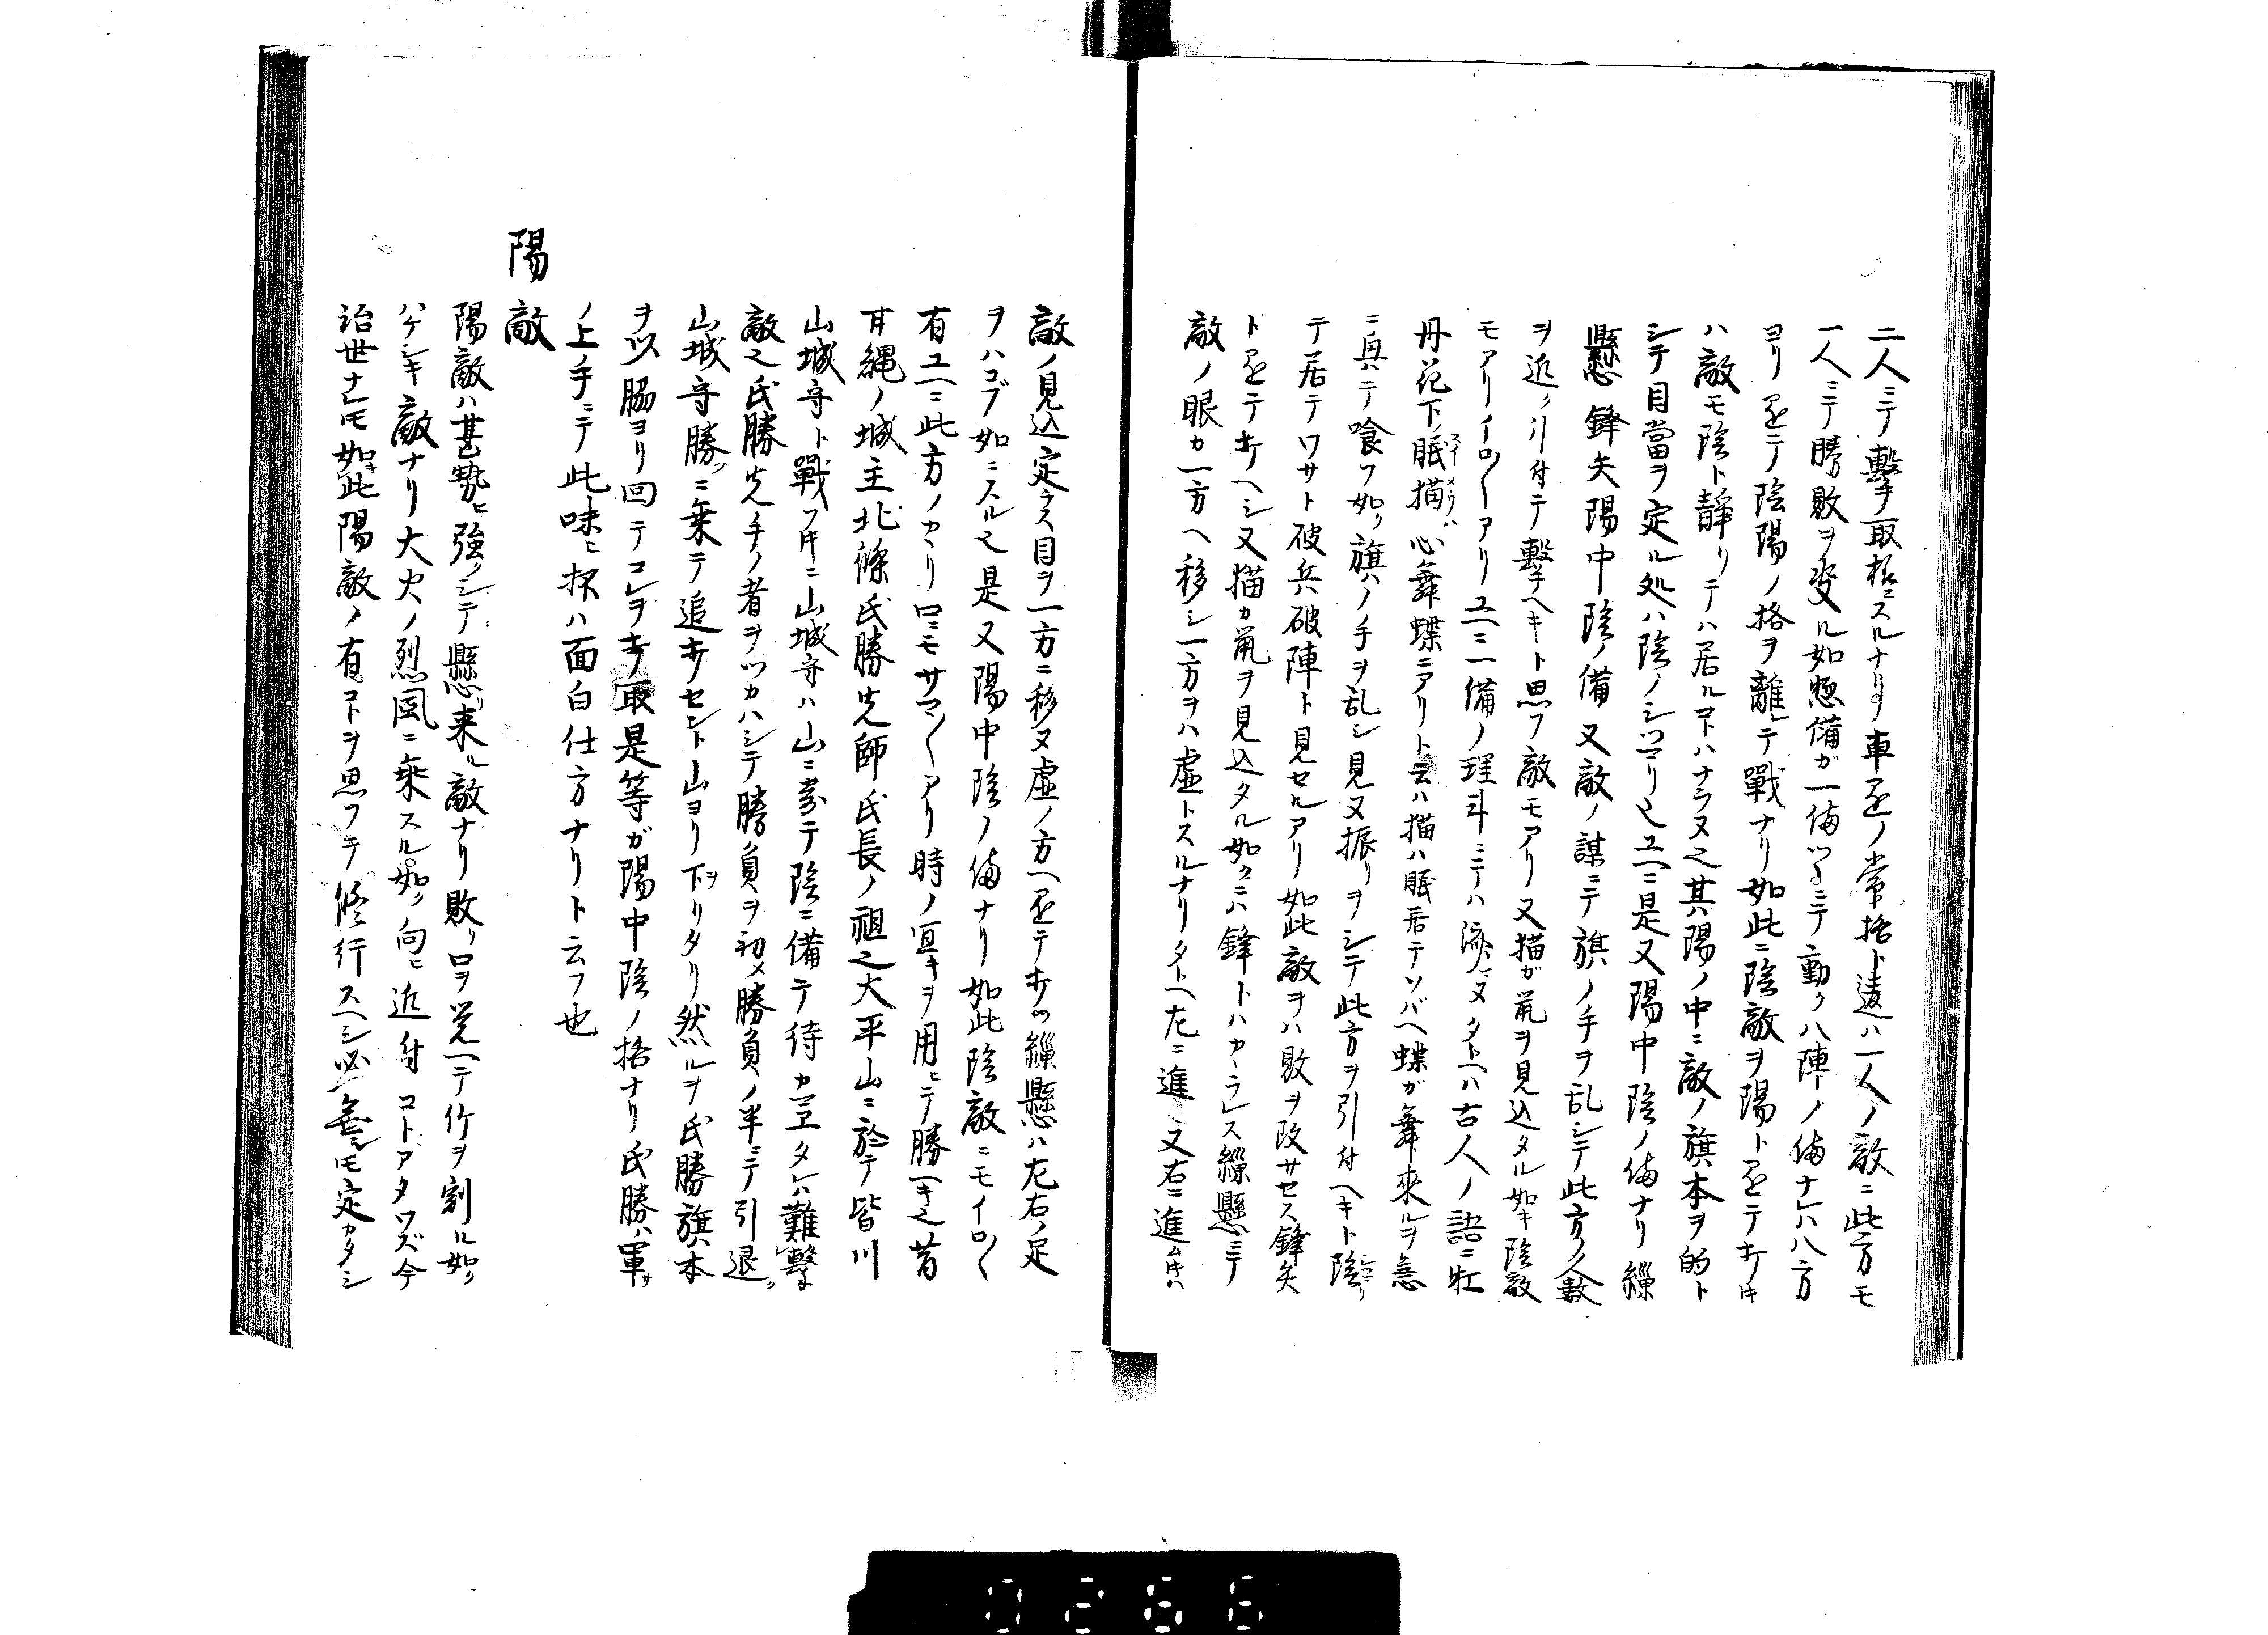 二人ニテ撃取格ニスルナリ車返ノ常格ト違ハ一人ノ敵ニ此方モ
一人ニテ勝敗ヲ爰ル如惣備ガ一備ツヽニテ動ク八陣ノ備ナレハ八方
ヨリ返テ陰陽ノ格ヲ離レテ戰ナリ如此ニ陰敵ヲ陽ト返テ
ハ敵モ陰ト靜リテハ居ルコトハナラヌ之其陽ノ中ニ敵ノ旗本ヲ的ト
シテ目當ヲ定ル処ハ陰ノシマリ之ユヘニ是又陽中陰ノ備ナリ繩
懸鋒矢陽中陰ノ備又敵ノ謀ニテ旗ノ手ヲ乱シテ此方ノ人数
ヲ近ク引付テ撃ヘキト思フ敵モアリ又猫ガ鼠ヲ見込タル如キ陰敵
モアリイロ〱アリユヘニ一備ノ理斗ニテハ濟ヌタトヘハ古人ノ語ニ牡
丹花下ノ眠猫ハ心舞蝶ニアリト云ハ猫ハ眠居テソバヘ蝶ガ舞来ルヲ急
ニ興ハテ喰フ如ク旗ノ手ヲ乱シ見又振リヲシテ此方ヲ引付ヘキト陰リ
テ居テワサト破兵破陣ト見セルアリ如此敵ヲハ敗ヲ改サセス鋒矢
ト返テヘシ又猫カ鼠ヲ見込タル如クニハ鋒トハカヽラレス繩懸ニテ
敵ノ眼カ一方ヘ移シ一方ヲハ虚トスルナリタトヘ左ニ進又右ニ進ム片ハ
敵ノ見込定ラス目ヲ一方ニ移ヌ虚ノ方ヘ返テ繩懸ハ左右ノ足
ヲハコブ如ニスル之是又陽中陰ノ備ナリ如此陰敵ニモイロ〱
有ユヘニ此方ノカヽリ口ニモサマ〱アリ時ノ宜キヲ用ヒテ勝ヘキ之昔
甘縄ノ城主北條氏勝先師氏長ノ祖之大平山ニ於テ皆川
山城守ト戰フ片ニ山城守ハ山ニ テ陰ニ備テ待カヱタレハ難撃
敵之氏勝先手ノ者ヲツカハシテ勝負ヲ初メ勝負ノ半ニテ引退ク
山城守勝ツニ乗テ追セント山ヨリ下リタリ然ルヲ氏勝旗本
ヲ以脇ヨリ回テコレヲ取是等ガ陽中陰ノ格ナリ氏勝ハ軍サ
ノ上手ニテ此味ヒ抔ハ面白仕方ナリト云フ也
陽敵
陽敵ハ甚勢ヒ強クシテ懸リ来ル敵ナリ敗リ口ヲ覚ヘテ竹ヲ割ル如ク
ハゲシキ敵ナリ大火ノ烈風ニ乗スル如ク向ヒ近付コトアタワズ今
治世ナレモ如此キ陽敵ノ有コトヲ思フテ修行スヘシ必無レモ定カタシ